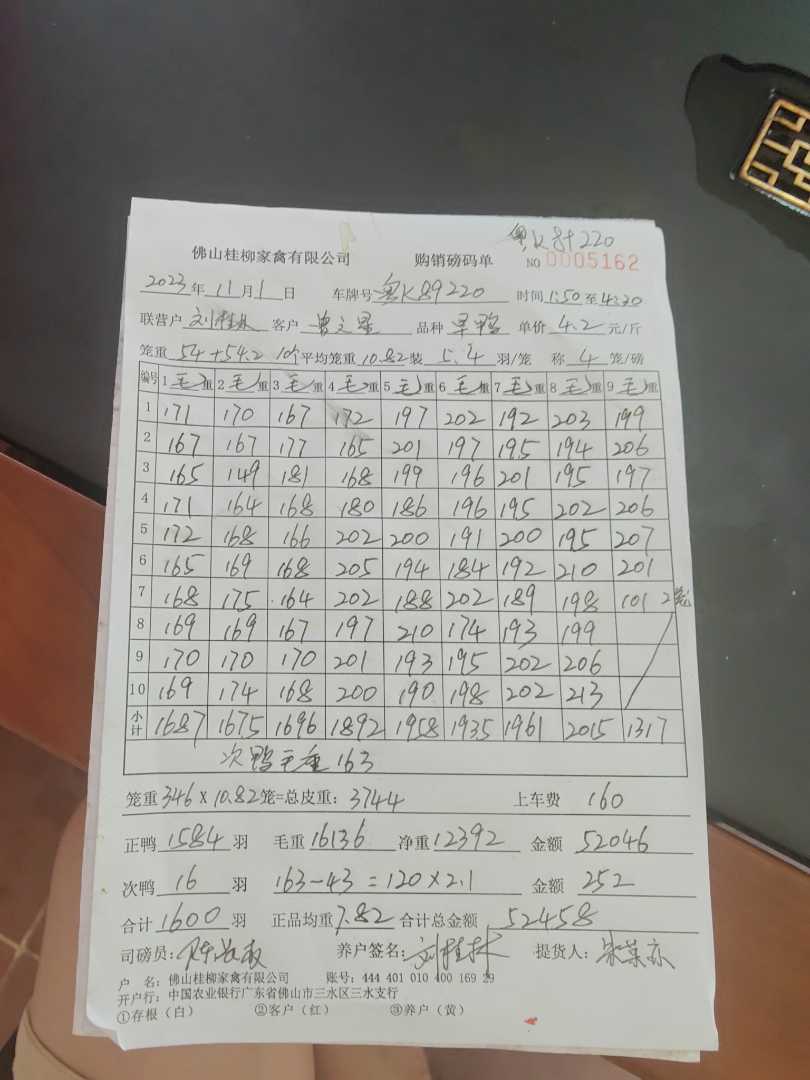 粤K89220
佛山桂柳家禽有限公司 购销磅码单 NO 0005162
2023年11月1日 车牌号粤K89220 时间1:50至4:20
联营户 刘桂林 客户 曾之星 品种 旱鸭 单价 4.2 元/斤
笼重 54+54.2 10个平均笼重10.82装 5.4 羽/笼 称 4 笼/磅
编号 1毛重 2毛重 3毛重 4毛重 5毛重 6毛重 7毛重 8毛重 9毛重
1 171 170 167 172 197 202 192 203 199
2 167 167 177 165 201 197 195 194 206
3 165 149 181 168 199 196 201 195 197
4 171 164 168 180 186 196 195 202 206
5 172 168 166 202 200 191 200 195 207
6 165 169 168 205 194 184 192 210 201
7 168 175 164 202 188 202 189 198 101 2笼
8 169 169 167 197 210 174 193 199
9 170 170 170 201 193 195 202 206
10 169 174 168 200 190 198 202 213
小计 1687 1675 1696 1892 1958 1935 1961 2015 1317
次鸭毛重 163
笼重346×10.82笼=总皮重: 3744 上车费 160
正鸭 1584 羽 毛重16136 净重12392 金额 52046
次鸭 16 羽 163-43=120×2.1 金额 252
合计1600羽 正品均重7.82 合计总金额 52458
司磅员: 养户签名: 刘桂林 提货人:
户 名: 佛山桂柳家禽有限公司 账号: 444 401 010 400 169 29
开户行: 中国农业银行广东省佛山市三水区三水支行
①存根(白) ②客户(红) ③养户(黄)